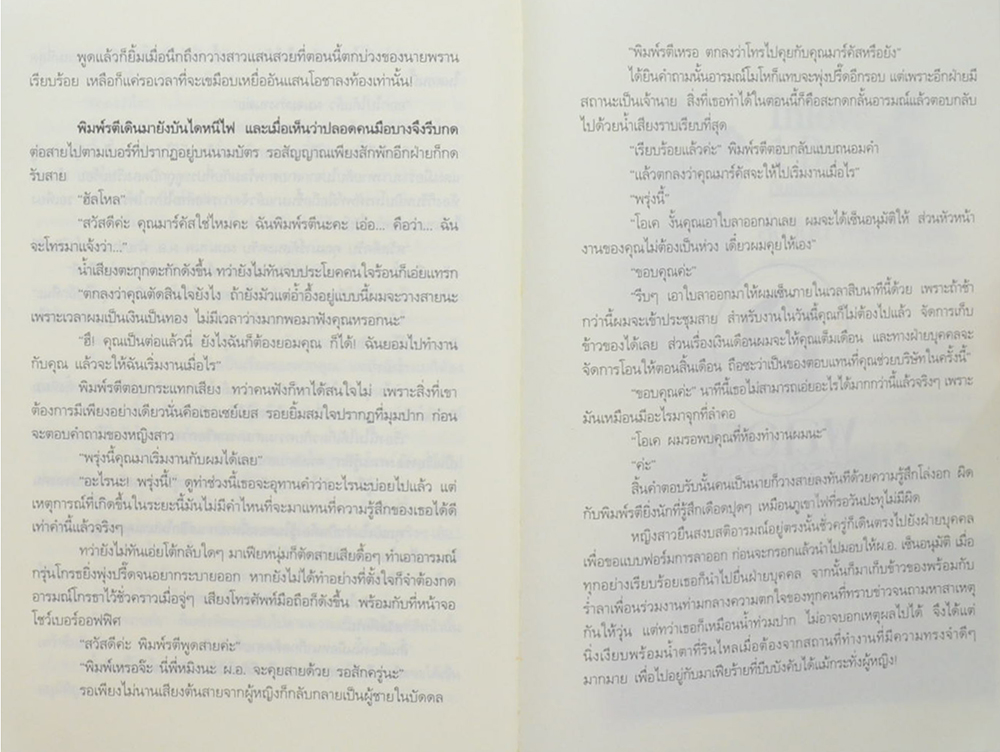 พูดแล้วก็ยิ้มเมื่อนึกถึงกวางสาวแสนสวยที่ตอนนี้ตกบ่วงของนายพราน
เรียบร้อย เหลือก็แค่รอเวลาที่จะเขมือบเหยื่ออันแสนโอชาลงท้องเท่านั้น!
พิมพ์รตีเดินมายังบันไดหนีไฟ และเมื่อเห็นว่าปลอดคนมือบางจึงรีบกด
ต่อสายไปตามเบอร์ที่ปรากฏอยู่บนนามบัตร รอสัญญาณเพียงสักพักอีกฝ่ายก็กด
รับสาย
“ฮัลโหล”
“สวัสดีค่ะ คุณมาร์คัสใช่ไหมคะ ฉันพิมพ์รตีนะคะ เอ่อ... คือว่า... ฉัน
จะโทรมาแจ้งว่า...”
น้ำเสียงตะกุกตะกักดังขึ้น ทว่ายังไม่ทันจบประโยคคนใจร้อนก็เอ่ยแทรก
“ตกลงว่าคุณตัดสินใจยังไง ถ้ายังมัวแต่อ้ำอึ้งอยู่แบบนี้ผมจะวางสายนะ
เพราะเวลาผมเป็นเงินเป็นทอง ไม่มีเวลาว่างมากพอมาฟังคุณหรอกนะ”
“ฮึ! คุณเป็นต่อแล้วนี่ ยังไงฉันก็ต้องยอมคุณ ก็ได้! ฉันยอมไปทำงาน
กับคุณ แล้วจะให้ฉันเริ่มงานเมื่อไร”
พิมพ์รตีตอบกระแทกเสียง ทว่าคนฟังก็หาได้สนใจไม่ เพราะสิ่งที่เขา
ต้องการมีเพียงอย่างเดียวนั่นคือเธอเซย์เยส รอยยิ้มสมใจปรากฏที่มุมปาก ก่อน
จะตอบคำถามของหญิงสาว
“พรุ่งนี้คุณมาเริ่มงานกับผมได้เลย”
“อะไรนะ! พรุ่งนี้!” ดูท่าช่วงนี้เธอจะอุทานคำว่าอะไรนะบ่อยไปแล้ว แต่
เหตุการณ์ที่เกิดขึ้นในระยะนี้มันไม่มีคำไหนที่จะมาแทนที่ความรู้สึกของเธอได้ดี
เท่าคำนี้แล้วจริงๆ
ทว่ายังไม่ทันเอ่ยโต้กลับใดๆ มาเฟียหนุ่มก็ตัดสายเสียดื้อๆ ทำเอาอารมณ์
กรุ่นโกรธยิ่งพุ่งปรี๊ดจนอยากระบายออก หากยังไม่ได้ทำอย่างที่ตั้งใจก็จำต้องกด
อารมณ์โกรธาไว้ชั่วคราวเมื่อจู่ๆ เสียงโทรศัพท์มือถือก็ดังขึ้น พร้อมกับที่หน้าจอ
โชว์เบอร์ออฟฟิศ
“สวัสดีค่ะ พิมพ์รตีพูดสายค่ะ”
“พิมพ์เหรอจ๊ะ นี่พี่หมิงนะ ผ.อ. จะคุยสายด้วย รอสักครู่นะ”
รอเพียงไม่นานเสียงต้นสายจากผู้หญิงก็กลับกลายเป็นผู้ชายในบัดดล
“พิมพ์รตีเหรอ ตกลงว่าโทรไปคุยกับคุณมาร์คัสหรือยัง”
ได้ยินคำถามนั้นอารมณ์โมโหก็แทบจะพุ่งปรี๊ดอีกรอบ แต่เพราะอีกฝ่ายมี
สถานะเป็นเจ้านาย สิ่งที่เธอทำได้ในตอนนี้ก็คือสะกดกลั้นอารมณ์แล้วตอบกลับ
ไปด้วยน้ำเสียงราบเรียบที่สุด
“เรียบร้อยแล้วค่ะ” พิมพ์รตีตอบกลับแบบถนอมคำ
“แล้วตกลงว่าคุณมาร์คัสจะให้ไปเริ่มงานเมื่อไร”
“พรุ่งนี้”
“โอเค งั้นคุณเอาใบลาออกมาเลย ผมจะได้เซ็นอนุมัติให้ ส่วนหัวหน้า
งานของคุณไม่ต้องเป็นห่วง เดี๋ยวผมคุยให้เอง”
“ขอบคุณค่ะ”
“รีบๆ เอาใบลาออกมาให้ผมเซ็นภายในเวลาสิบนาทีนี้ด้วย เพราะถ้าช้า
กว่านี้ผมจะเข้าประชุมสาย สำหรับงานในวันนี้คุณก็ไม่ต้องไปแล้ว จัดการเก็บ
ข้าวของได้เลย ส่วนเรื่องเงินเดือนผมจะให้คุณเต็มเดือน และทางฝ่ายบุคคลจะ
จัดการโอนให้ตอนสิ้นเดือน ถือซะว่าเป็นของตอบแทนที่คุณช่วยบริษัทในครั้งนี้”
“ขอบคุณค่ะ” นาทีนี้เธอไม่สามารถเอ่ยอะไรได้มากกว่านี้แล้วจริงๆ เพราะ
มันเหมือนมีอะไรมาจุกที่ลำคอ
“โอเค ผมรอพบคุณที่ห้องทำงานผมนะ”
“ค่ะ”
สิ้นคำตอบรับนั้นคนเป็นนายก็วางสายลงทันทีด้วยความรู้สึกโล่งอก ผิด
กับพิมพ์รตียิ่งนักที่รู้สึกเดือดปุดๆ เหมือนภูเขาไฟที่รอวันปะทุไม่มีผิด
หญิงสาวยืนสงบสติอารมณ์อยู่ตรงนั้นชั่วครู่ก็เดินตรงไปยังฝ่ายบุคคล
เพื่อขอแบบฟอร์มการลาออก ก่อนจะกรอกแล้วนำไปมอบให้ผ.อ. เซ็นอนุมัติ เมื่อ
ทุกอย่างเรียบร้อยเธอก็นำไปยื่นฝ่ายบุคคล จากนั้นก็มาเก็บข้าวของพร้อมกับ
ร่ำลาเพื่อนร่วมงานท่ามกลางความตกใจของทุกคนที่ทราบข่าวจนถามหาสาเหตุ
กันให้วุ่น แต่ทว่าเธอก็เหมือนน้ำท่วมปาก ไม่อาจบอกเหตุผลไปได้ จึงได้แต่
นิ่งเงียบพร้อมน้ำตาที่รินไหลเมื่อต้องจากสถานที่ทำงานที่มีความทรงจำดีๆ
มากมาย เพื่อไปอยู่กับมาเฟียร้ายที่บีบบังคับได้แม้กระทั่งผู้หญิง!